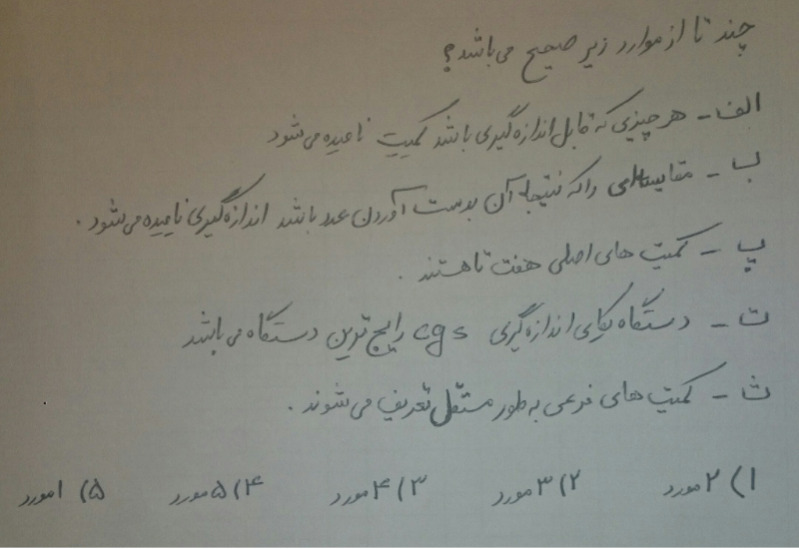 چند تا از موارد زیر صحیح می باشد؟
الف - هر چیزی که قابل اندازه گیری باشد کمیت نامیده می شود
ب - مقایسه ای را که نتیجه آن بدست آوردن عدد باشد اندازه گیری نامیده می شود .
پ - کمیت های اصلی هفت تا هستند .
ت - دستگاه یکای اندازه گیری cgs رایج ترین دستگاه می باشد
ث - کمیت های فرعی به طور مستقل تعریف می شوند .
۱) ۲ مورد ۲) ۳ مورد ۳) ۴ مورد ۴) ۵ مورد ۵) ۱ مورد